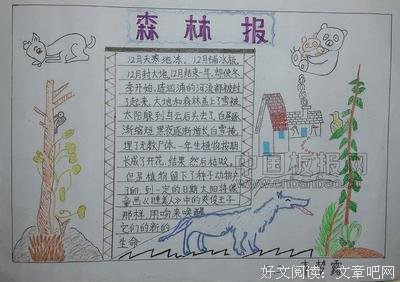 森林报
12月天寒地冻。12月铺冰板,
12月封大地,12月结束一年,却使冬
季开始,连汹涌的河流都被封
了起来,大地和森林盖上了雪被
太阳躲到乌云后去了。白昼逐
渐缩短,黑夜逐渐增长白雪掩
埋了无数尸体。一年生植物按期
长成了开花、结果然后枯败,
但是植物留下了种子动物产
了卵,到一定的日期太阳将像
童画《睡美人》中的英俊王子
那样,用吻来唤醒
它们的新的
生命
中国板报网
www.cnbanbao.cn
好文阅读:文章吧网